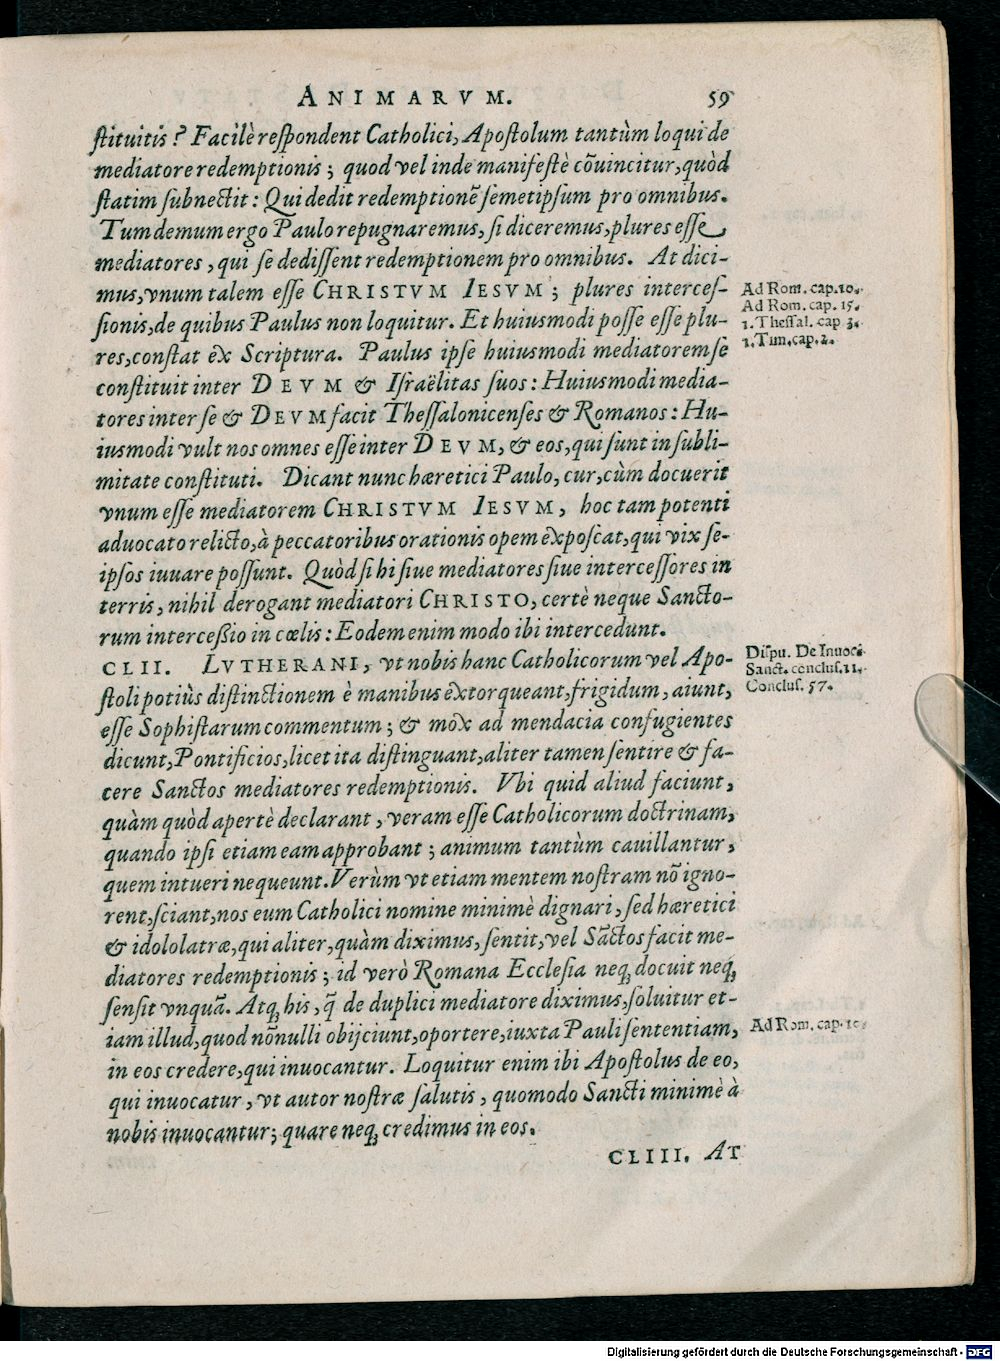 ANIMARVM. 59
ſtituitis? Facilè reſpondent Catholici, Apoſtolum tantùm loqui de
mediatore redemptionis; quod vel inde manifeſtè cõuincitur, quòd
ſtatim ſubnectit: Qui dedit redemptionẽ ſemetipſum pro omnibus.
Tum demum ergo Paulo repugnaremus, ſi diceremus, plures eſſe
mediatores, qui ſe dediſſent redemptionem pro omnibus. At dici-
mus, vnum talem eſſe CHRISTVM IESVM; plures interceſ-
ſionis, de quibus Paulus non loquitur. Et huiusmodi poſſe eſſe plu-
res, conſtat ex Scriptura. Paulus ipſe huiusmodi mediatorem ſe
conſtituit inter DEVM & Iſraëlitas ſuos: Huiusmodi media-
tores inter ſe & DEVM facit Theſſalonicenſes & Romanos: Hu-
iusmodi vult nos omnes eſſe inter DEVM, & eos, qui ſunt in ſubli-
mitate conſtituti. Dicant nunc hæretici Paulo, cur, cùm docuerit
vnum eſſe mediatorem CHRISTVM IESVM, hoc tam potenti
aduocato relicto, à peccatoribus orationis opem expoſcat, qui vix ſe-
ipſos iuuare poſſunt. Quòd ſi hi ſiue mediatores ſiue interceſſores in
terris, nihil derogant mediatori CHRISTO, certè neque Sancto-
rum interceßio in cœlis: Eodem enim modo ibi intercedunt.
CLII. LVTHERANI, vt nobis hanc Catholicorum vel Apo-
ſtoli potiùs diſtinctionem è manibus extorqueant, frigidum, aiunt,
eſſe Sophiſtarum commentum; & mox ad mendacia confugientes
dicunt, Pontificios, licet ita diſtinguant, aliter tamen ſentire & fa-
cere Sanctos mediatores redemptionis. Vbi quid aliud faciunt,
quàm quòd apertè declarant, veram eſſe Catholicorum doctrinam,
quando ipſi etiam eam approbant; animum tantùm cauillantur,
quem intueri nequeunt. Verùm vt etiam mentem noſtram nõ igno-
rent, ſciant, nos eum Catholici nomine minimè dignari, ſed hæretici
& idololatræ, qui aliter, quàm diximus, ſentit, vel Sãctos facit me-
diatores redemptionis; id verò Romana Eccleſia neq; docuit neq;
ſenſit vnquã. Atq; his, q̃ de duplici mediatore diximus, ſoluitur et-
iam illud, quod nõnulli obijciunt, oportere, iuxta Pauli ſententiam,
in eos credere, qui inuocantur. Loquitur enim ibi Apoſtolus de eo,
qui inuocatur, vt autor noſtræ ſalutis, quomodo Sancti minimè à
nobis inuocantur; quare neq; credimus in eos.
CLIII. AT
Ad Rom. cap. 10.
Ad Rom. cap. 15.
1. Theſſal. cap 3.
1. Tim. cap. 2.
Diſpu. De Inuoc.
Sanct. concluſ. 11.
Concluſ. 57.
Ad Rom. cap. 10.
Digitalisierung gefördert durch die Deutsche Forschungsgemeinschaft - DFG